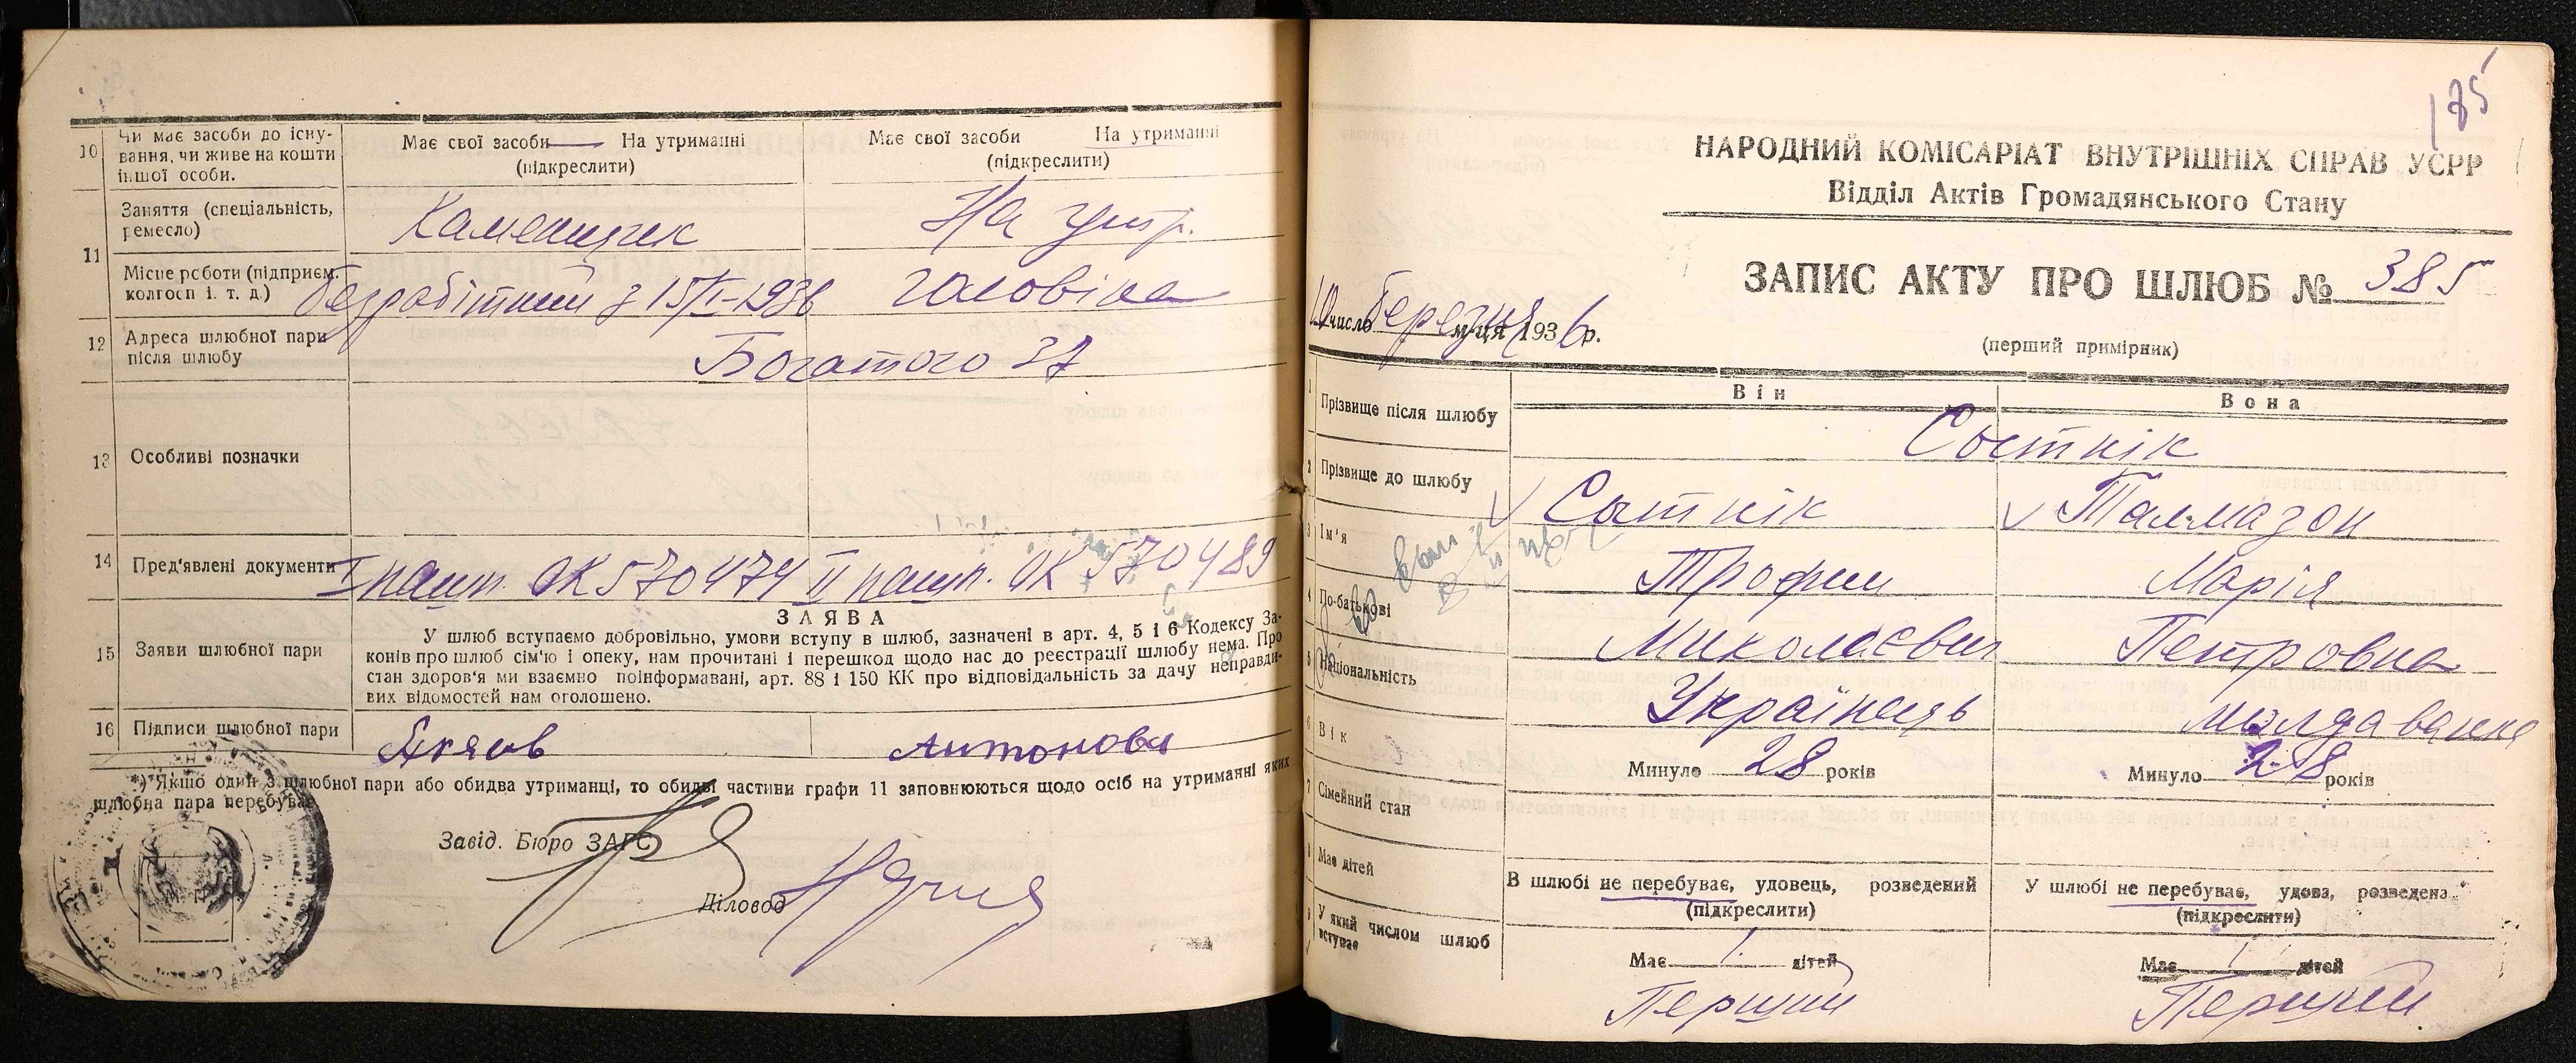 10 Чи має засоби до існу-
вання, чи живе на кошти
іншої особи.
Має свої засоби На утриманні
(підкреслити)
Має свої засоби На утриманні
(підкреслити)
11 Заняття (спеціальність,
ремесло)
Каменщик
На утр.
Місце роботи (підприєм.
колгосп і. т. д.)
безробітний з 15/I-1936
чоловіка
12 Адреса шлюбної пари
після шлюбу
Богатого 37
13 Особливі позначки
14 Пред'явлені документи
I пашп. ОК 570474 II пашп. ОК 570489
15 Заяви шлюбної пари
ЗАЯВА
У шлюб вступаємо добровільно, умови вступу в шлюб, зазначені в арт. 4, 5 і 6 Кодексу За-
конів про шлюб сім'ю і опеку, нам прочитані і перешкод щодо нас до реєстрації шлюбу нема. Про
стан здоров'я ми взаємно поінформавані, арт. 88 і 150 КК про відповідальність за дачу неправди-
вих відомостей нам оголошено.
16 Підписи шлюбної пари
Антонова
*) Якщо один з шлюбної пари або обидва утриманці, то обидві частини графи 11 заповнюються щодо осіб на утриманні яких
шлюбна пара перебуває
Завід. Бюро ЗАГС
Діловод
НАРОДНИЙ КОМІСАРІАТ ВНУТРІШНІХ СПРАВ УСРР
Відділ Актів Громадянського Стану
ЗАПИС АКТУ ПРО ШЛЮБ № 385
10 число березня м-ця 1936 р.
(перший примірник)
Він
Вона
1 Прізвище після шлюбу
Сотнік
2 Прізвище до шлюбу
Сотнік
Талмазон
3 Ім'я
Трофим
Марія
4 По-батькові
Миколаєвич
Петровна
5 Національність
Українець
Молдаванка
6 Вік
Минуло 28 років
Минуло 28 років
7 Сімейний стан
В шлюбі не перебуває, удовець, розведений
(підкреслити)
У шлюбі не перебуває, удова, розведена
(підкреслити)
8 Має дітей
Має дітей
Має дітей
9 У який числом шлюб
вступає
Перший
Перший